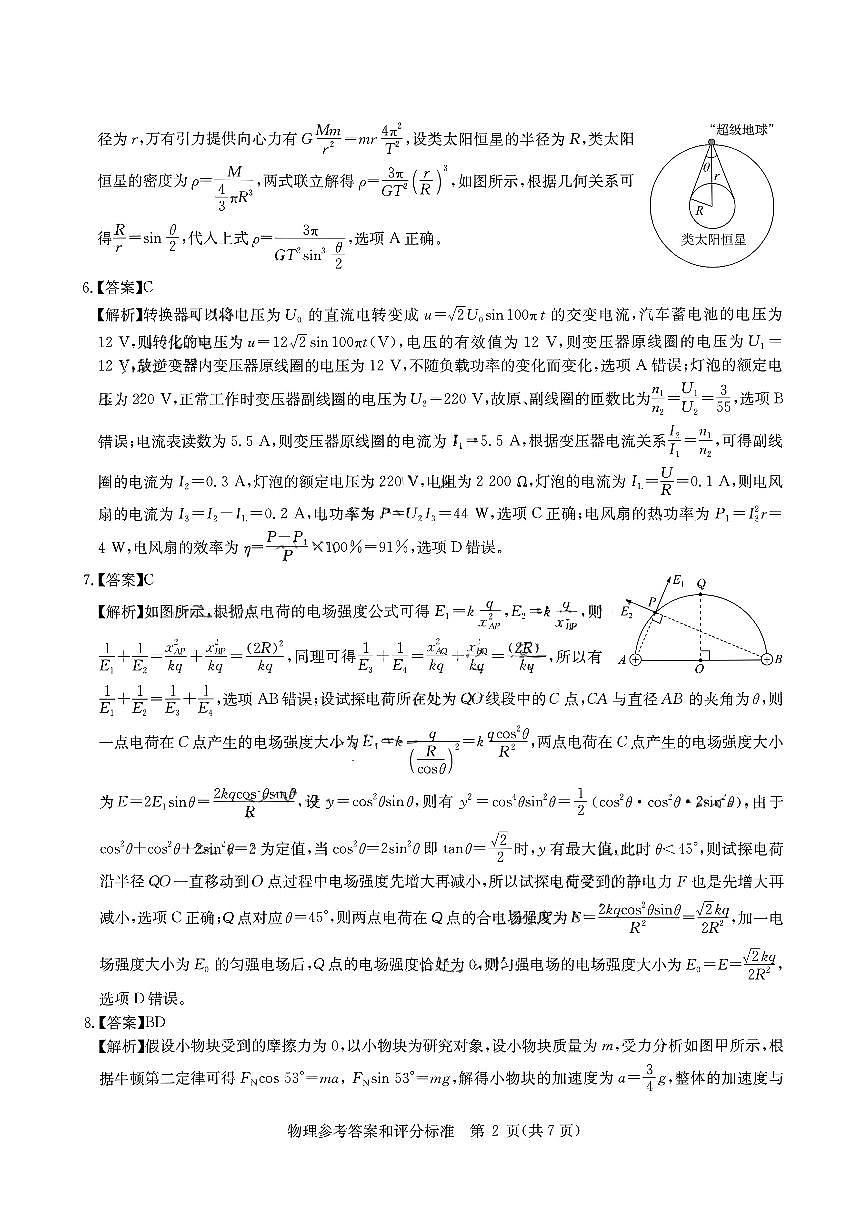 径为 r,万有引力提供向心力有 G\frac{Mm}{r^2}=mr\frac{4π^2}{T^2},设类太阳恒星的半径为 R,类太阳
恒星的密度为 ρ=\frac{M}{\frac{4}{3}πR^3},两式联立解得 ρ=\frac{3π}{GT^2}(\frac{r}{R})^3,如图所示,根据几何关系可
得\frac{R}{r}=sin\frac{θ}{2},代入上式 ρ=\frac{3π}{GT^2sin^3\frac{θ}{2}},选项 A 正确。
"超级地球"
θ
r
R
类太阳恒星
6.【答案】C
【解析】转换器可以将电压为 U_0 的直流电转变成 u=\sqrt{2}U_0sin 100πt 的交变电流,汽车蓄电池的电压为
12 V,则转化的电压为 u=12\sqrt{2}sin 100πt(V),电压的有效值为 12 V,则变压器原线圈的电压为 U_1=
12 V,故逆变器内变压器原线圈的电压为 12 V,不随负载功率的变化而变化,选项 A 错误;灯泡的额定电
压为 220 V,正常工作时变压器副线圈的电压为 U_2=220 V,故原、副线圈的匝数比为\frac{n_1}{n_2}=\frac{U_1}{U_2}=\frac{3}{55},选项 B
错误;电流表读数为 5.5 A,则变压器原线圈的电流为 I_1=5.5 A,根据变压器电流关系\frac{I_2}{I_1}=\frac{n_1}{n_2},可得副线
圈的电流为 I_2=0.3 A,灯泡的额定电压为 220 V,电阻为 2 200 Ω,灯泡的电流为 I_L=\frac{U}{R}=0.1 A,则电风
扇的电流为 I_3=I_2-I_L=0.2 A,电功率为 P=U_2I_3=44 W,选项 C 正确;电风扇的热功率为 P_1=I_3^2r=
4 W,电风扇的效率为 η=\frac{P-P_1}{P}×100%=91%,选项 D 错误。
7.【答案】C
【解析】如图所示,根据点电荷的电场强度公式可得 E_1=k\frac{q}{x_{AP}^2},E_2=k\frac{q}{x_{BP}^2},则
\frac{1}{E_1}+\frac{1}{E_2}=\frac{x_{AP}^2}{kq}+\frac{x_{BP}^2}{kq}=\frac{(2R)^2}{kq},同理可得\frac{1}{E_3}+\frac{1}{E_4}=\frac{x_{AQ}^2}{kq}+\frac{x_{BQ}^2}{kq}=\frac{(2R)^2}{kq},所以有
E_1
Q
E_2
P
A
O
B
\frac{1}{E_1}+\frac{1}{E_2}=\frac{1}{E_3}+\frac{1}{E_4},选项 AB 错误;设试探电荷所在处为 QO 线段中的 C 点,CA 与直径 AB 的夹角为 θ,则
一点电荷在 C 点产生的电场强度大小为 E_1=k\frac{q}{(\frac{R}{cosθ})^2}=k\frac{qcos^2θ}{R^2},两点电荷在 C 点产生的电场强度大小
为 E=2E_1sinθ=\frac{2kqcos^2θsinθ}{R^2},设 y=cos^2θsinθ,则有 y^2=cos^4θsin^2θ=\frac{1}{2}(cos^2θ·cos^2θ·2sin^2θ),由于
cos^2θ+cos^2θ+2sin^2θ=2 为定值,当 cos^2θ=2sin^2θ 即 tanθ=\frac{\sqrt{2}}{2}时,y 有最大值,此时 θ<45°,则试探电荷
沿半径 QO 一直移动到 O 点过程中电场强度先增大再减小,所以试探电荷受到的静电力 F 也是先增大再
减小,选项 C 正确;Q 点对应 θ=45°,则两点电荷在 Q 点的合电场强度为 E=\frac{2kqcos^2θsinθ}{R^2}=\frac{\sqrt{2}kq}{2R^2},加一电
场强度大小为 E_3 的匀强电场后,Q 点的电场强度恰好为 0,则匀强电场的电场强度大小为 E_3=E=\frac{\sqrt{2}kq}{2R^2},
选项 D 错误。
8.【答案】BD
【解析】假设小物块受到的摩擦力为 0,以小物块为研究对象,设小物块质量为 m,受力分析如图甲所示,根
据牛顿第二定律可得 F_Ncos 53°=ma, F_Nsin 53°=mg,解得小物块的加速度为 a=\frac{3}{4}g,整体的加速度与
物理参考答案和评分标准 第 2 页(共 7 页)